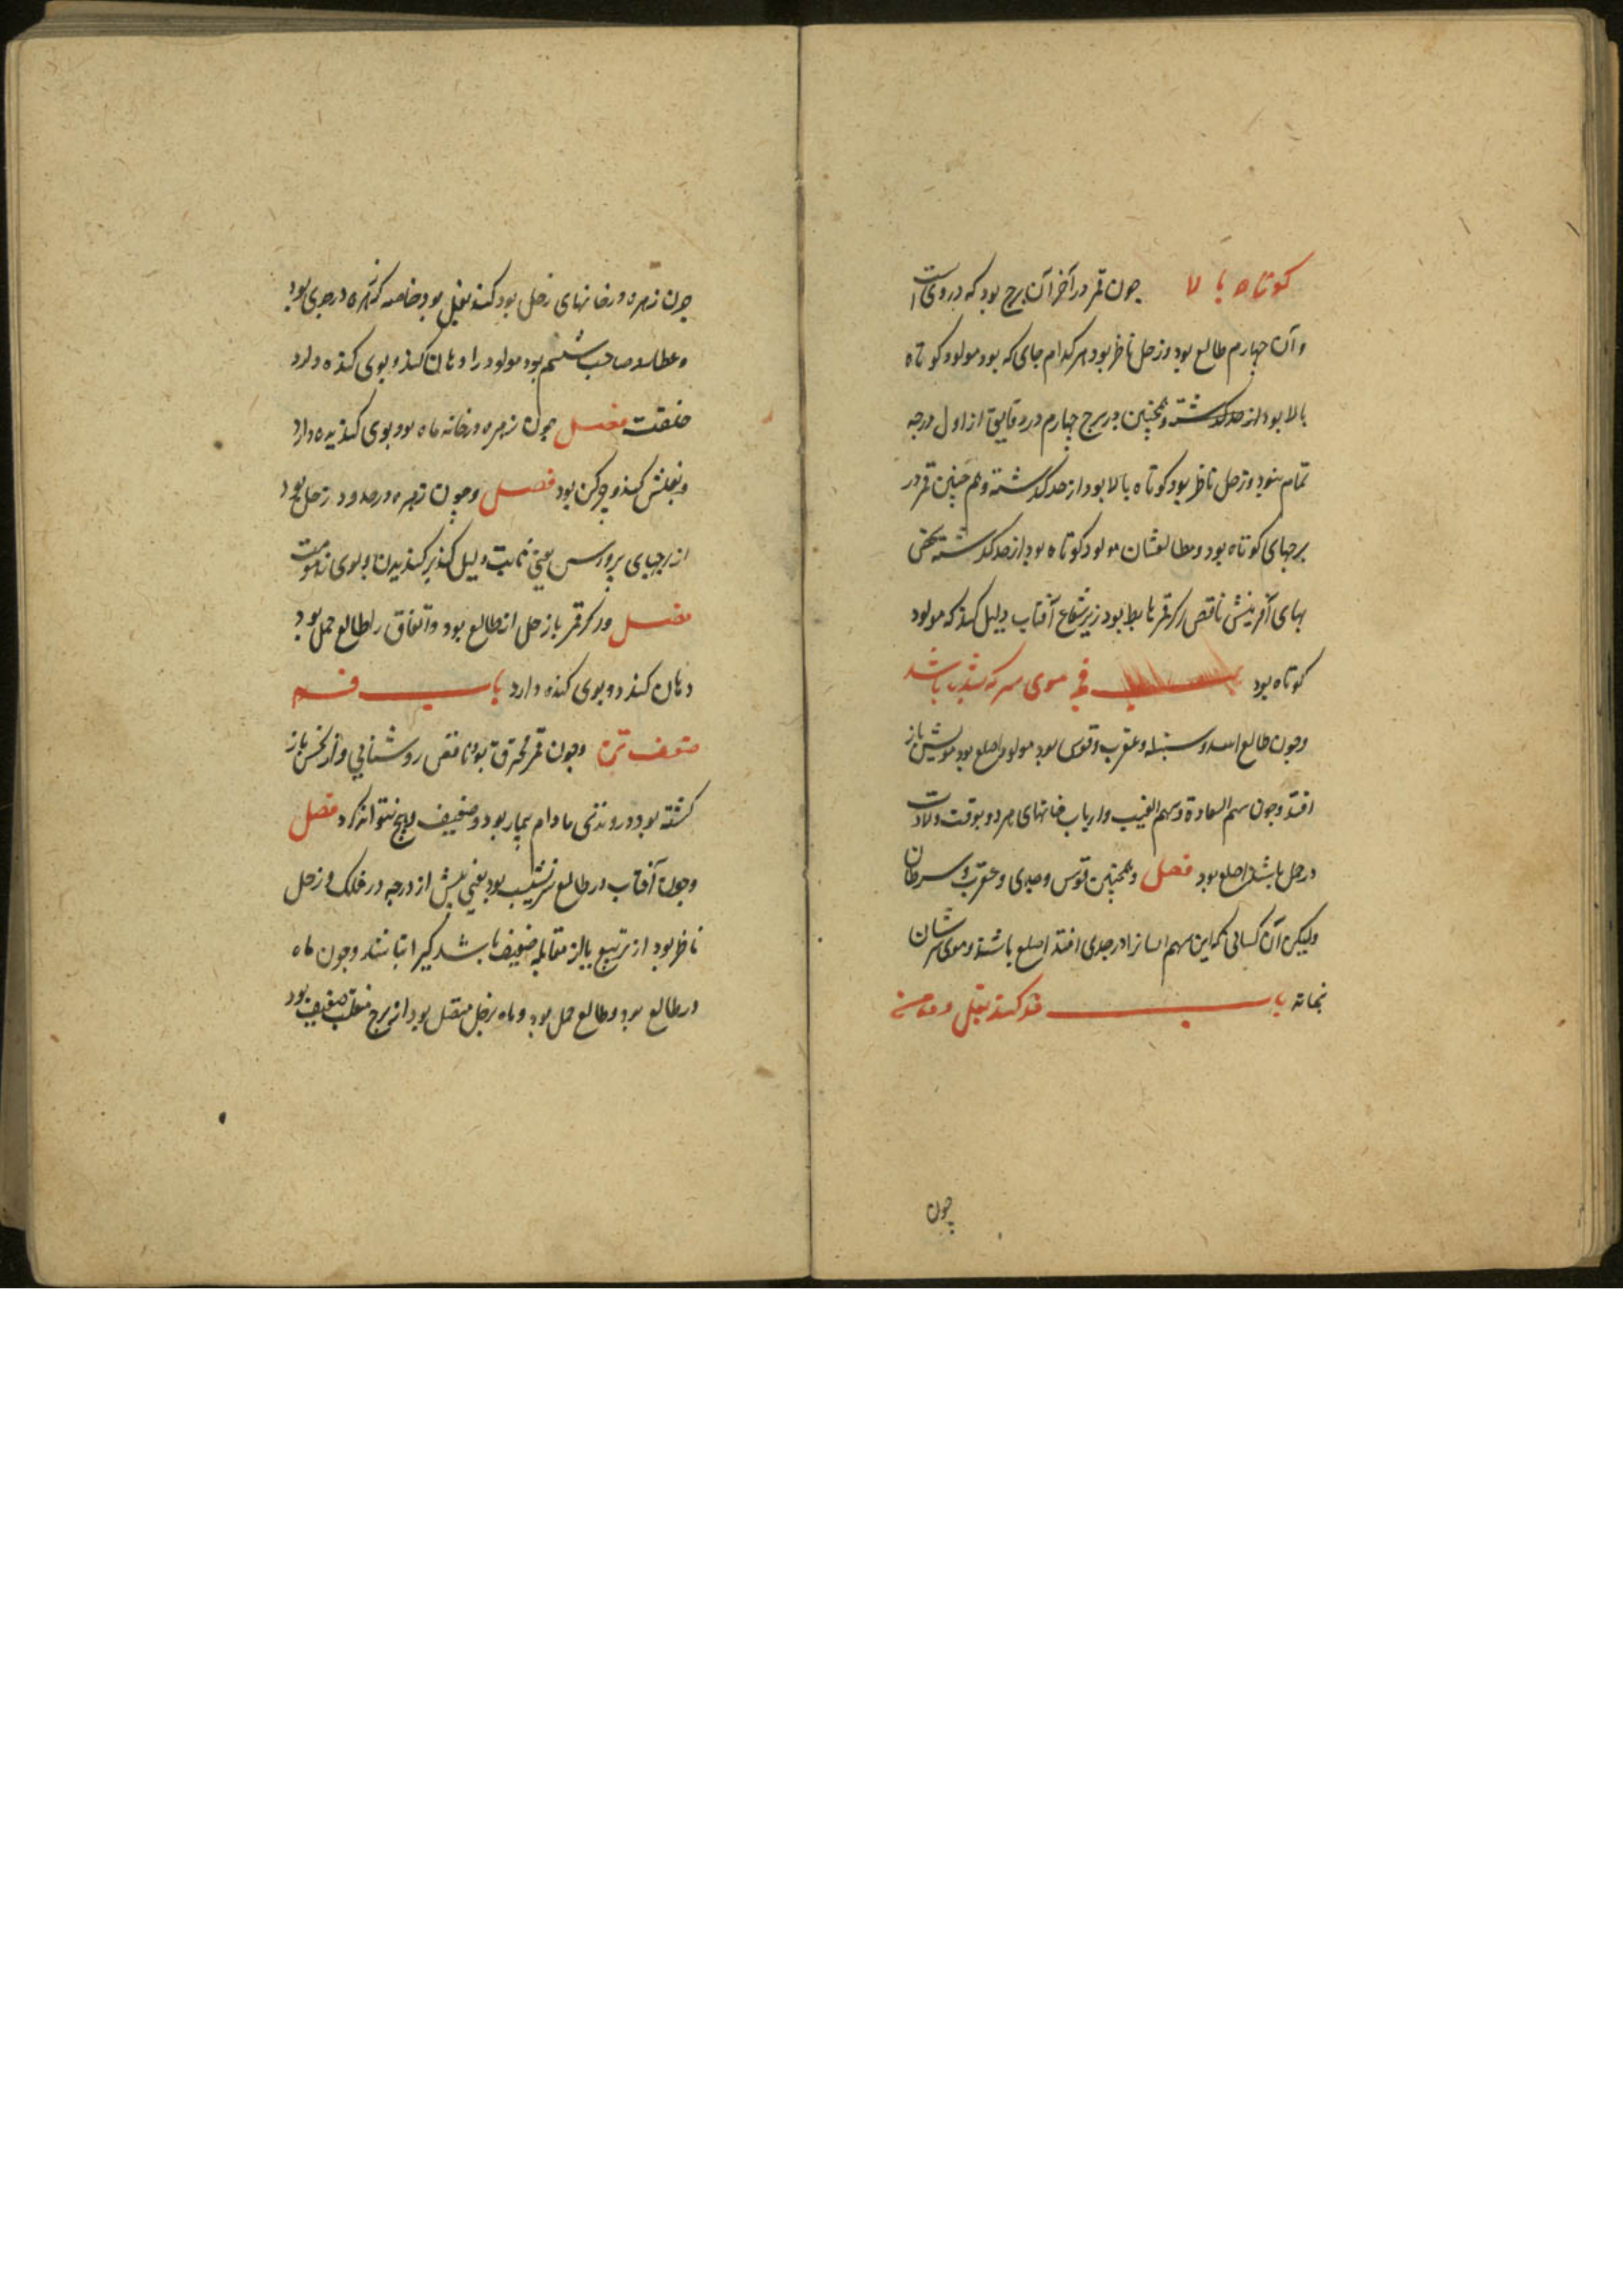 کوتاه بالا چون قمر در آخر آن برج بود که در وی است
و آن چهارم طالع بود و زحل ناظر بود هر کدام جای که بود مولود کوتاه
بالا بود از حد گذشته و همچنین در برج چهارم در دقایق از اول درجه
تمام بنود و زحل ناظر بود کوتاه بالا بود از حد گذشته و هم چنین قمر در
برجهای کوتاه بود و مطالعشان مولود کوتاه بود از حد گذشته
بهای آفرینش ناقص اگر قمر هابط بود زیر شعاع آفتاب دلیل کند که مولود
کوتاه بود فی موی سر که باشد
و چون طالع اسد و سنبله و عقرب و قوس بود مولود اصلع بود مویش باز
افتد و چون سهم السعادة و سهم الغیب و ارباب خانهای هر دو بوقت ولادت
در حمل باشد اصلع بود فصل و همچنین قوس و جدی و عقرب و سرطان
ولیکن آن کسانی که این سهم ایشانرا در جدی افتد اصلع باشند و موی سرشان
نماند باب بغل
چون
چون زهره در خانهای زحل بود کند بغل بود خاصه که زهره در جدی بود
و عطارد صاحب ششم بود مولود را دهان کند و بوی کنده دارد
فصل چون زهره در خانه ماه بود بوی کندیده دارد
و بغلش کند و چرکن بود فصل و چون زهره در حدود زحل بود
از برجهای یعنی ثابت دلیل کند بر کندیدن و بوی
فصل و اگر قمر با زحل از طالع بود و اتفاق را طالع حمل بود
دهان کند و بوی کنده دارد باب
ضعف تن و چون قمر محترق بود ناقص روشنایی و از نحس باز
گشته بود و روندنی مادام بیمار بود و ضعیف و هیچ نتواند کرد فصل
و چون آفتاب در طالع بود یعنی بیش از درجه در فلک و زحل
ناظر بود از تربیع یا از مقابله ضعیف باشد و چون ماه
در طالع بود و طالع حمل بود و ماه بزحل متصل بود از برج منقلب ضعیف بود